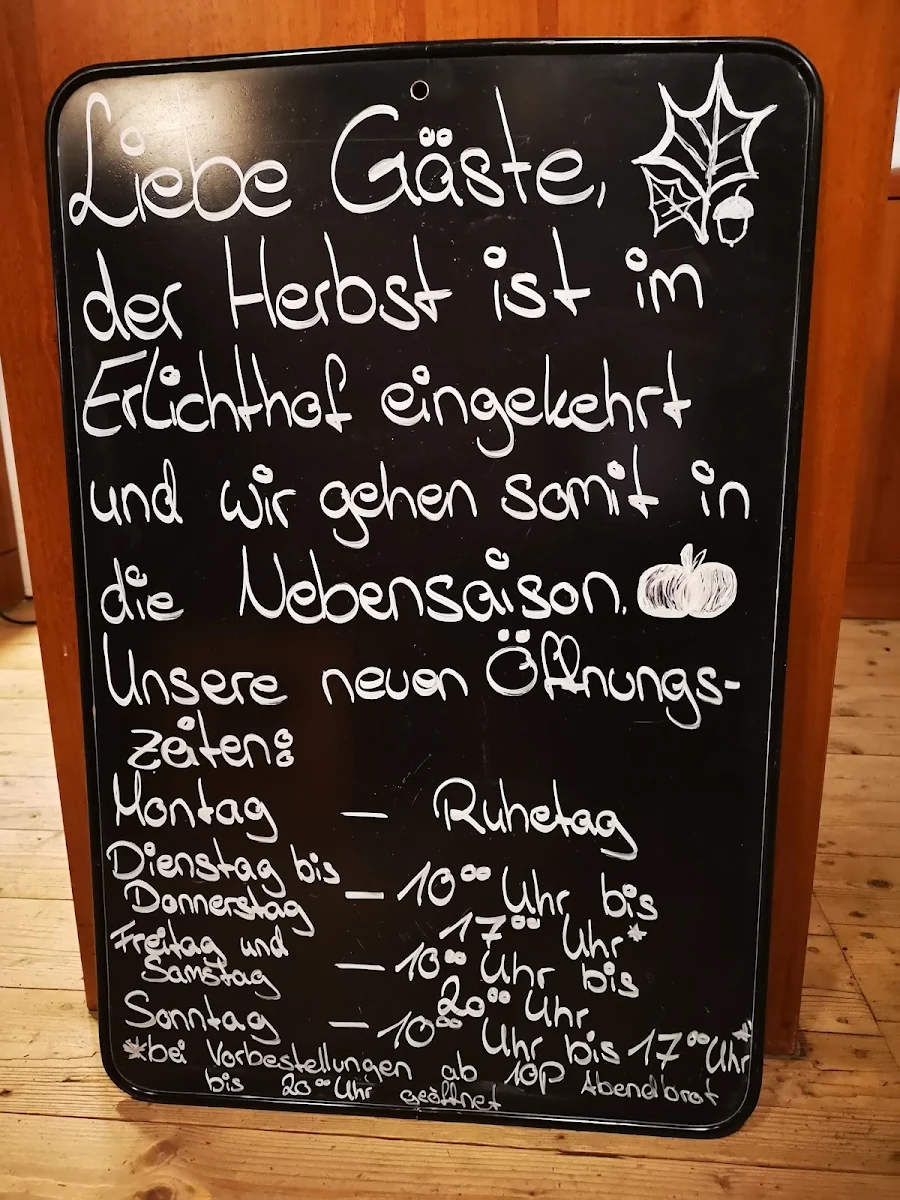 Liebe Gäste,
der Herbst ist im
Erlichthof eingekehrt
und wir gehen somit in
die Nebensaison.
Unsere neuen Öffnungs-
zeiten:
Montag — Ruhetag
Dienstag bis
Donnerstag — 10⁰⁰ Uhr bis
17⁰⁰ Uhr*
Freitag und
Samstag — 10⁰⁰ Uhr bis
20⁰⁰ Uhr
Sonntag — 10⁰⁰ Uhr bis 17⁰⁰ Uhr*
*bei Vorbestellungen ab 10P Abendbrot
bis 20⁰⁰ Uhr geöffnet